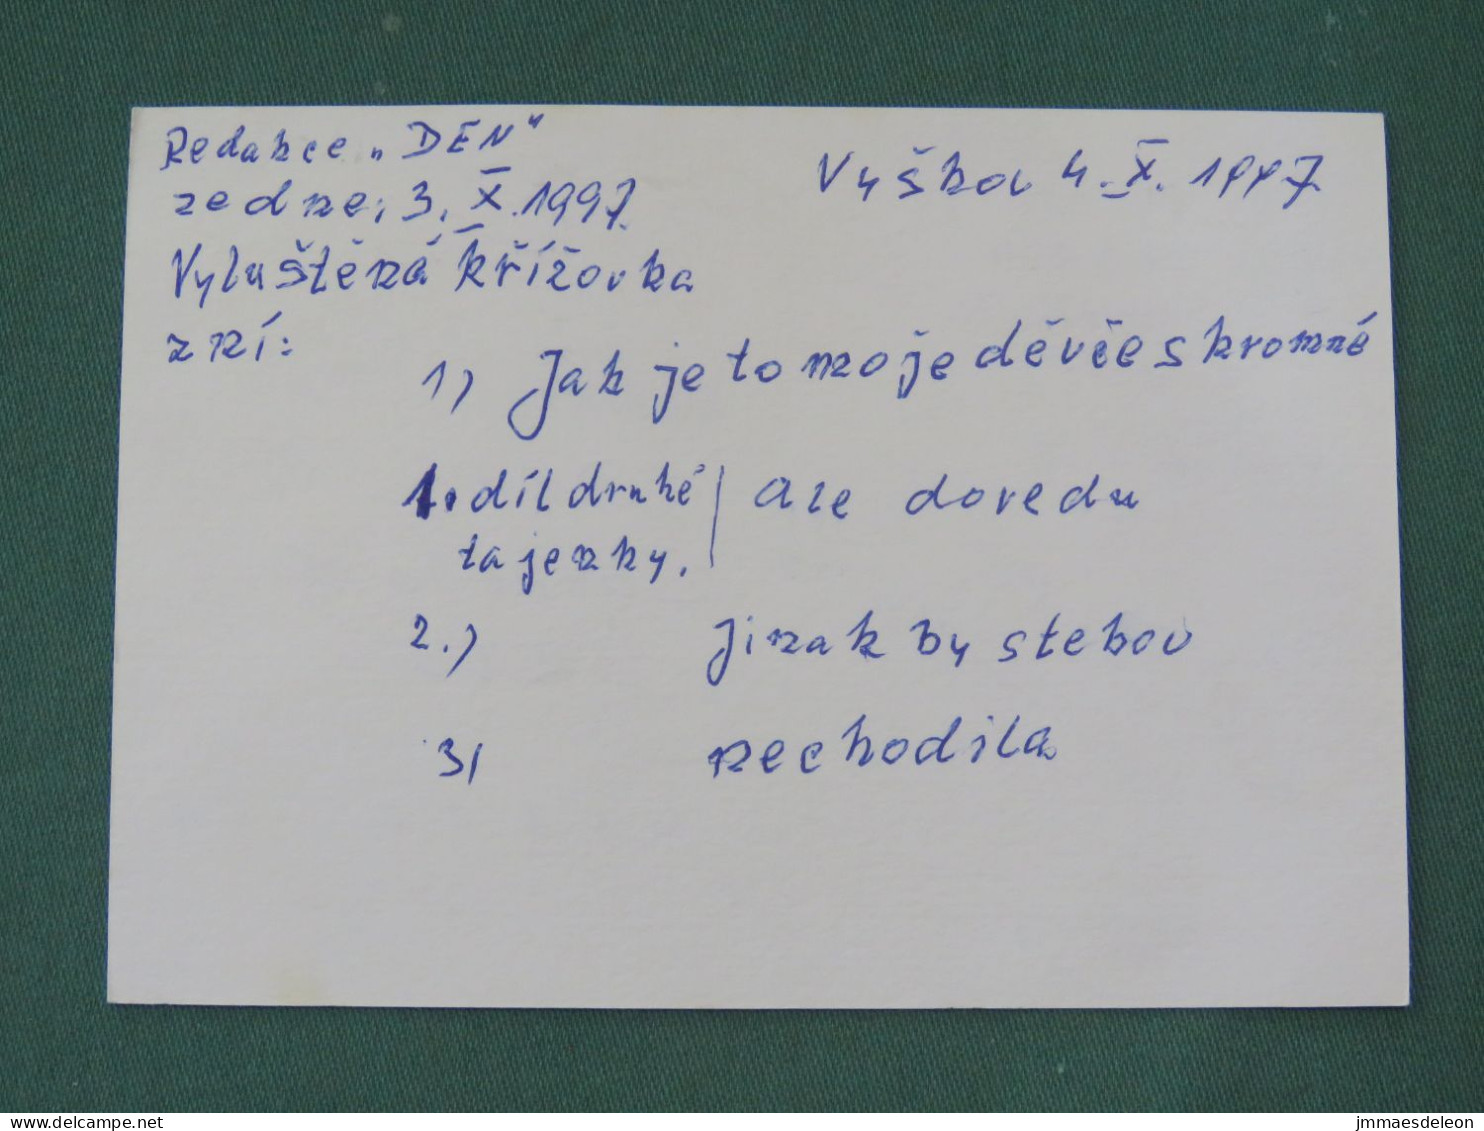 Redakce „DEN"
ze dne: 3. X. 1997.
Vyškov 4. X. 1997.
Vyluštěná křížovka
zní:
1) Jak je to moje děvče skromné
1. díl druhé | ale dovedu
tajenky.
2.) Jinak by s tebou
3) nechodila
www.delcampe.net
jmmaesdeleon